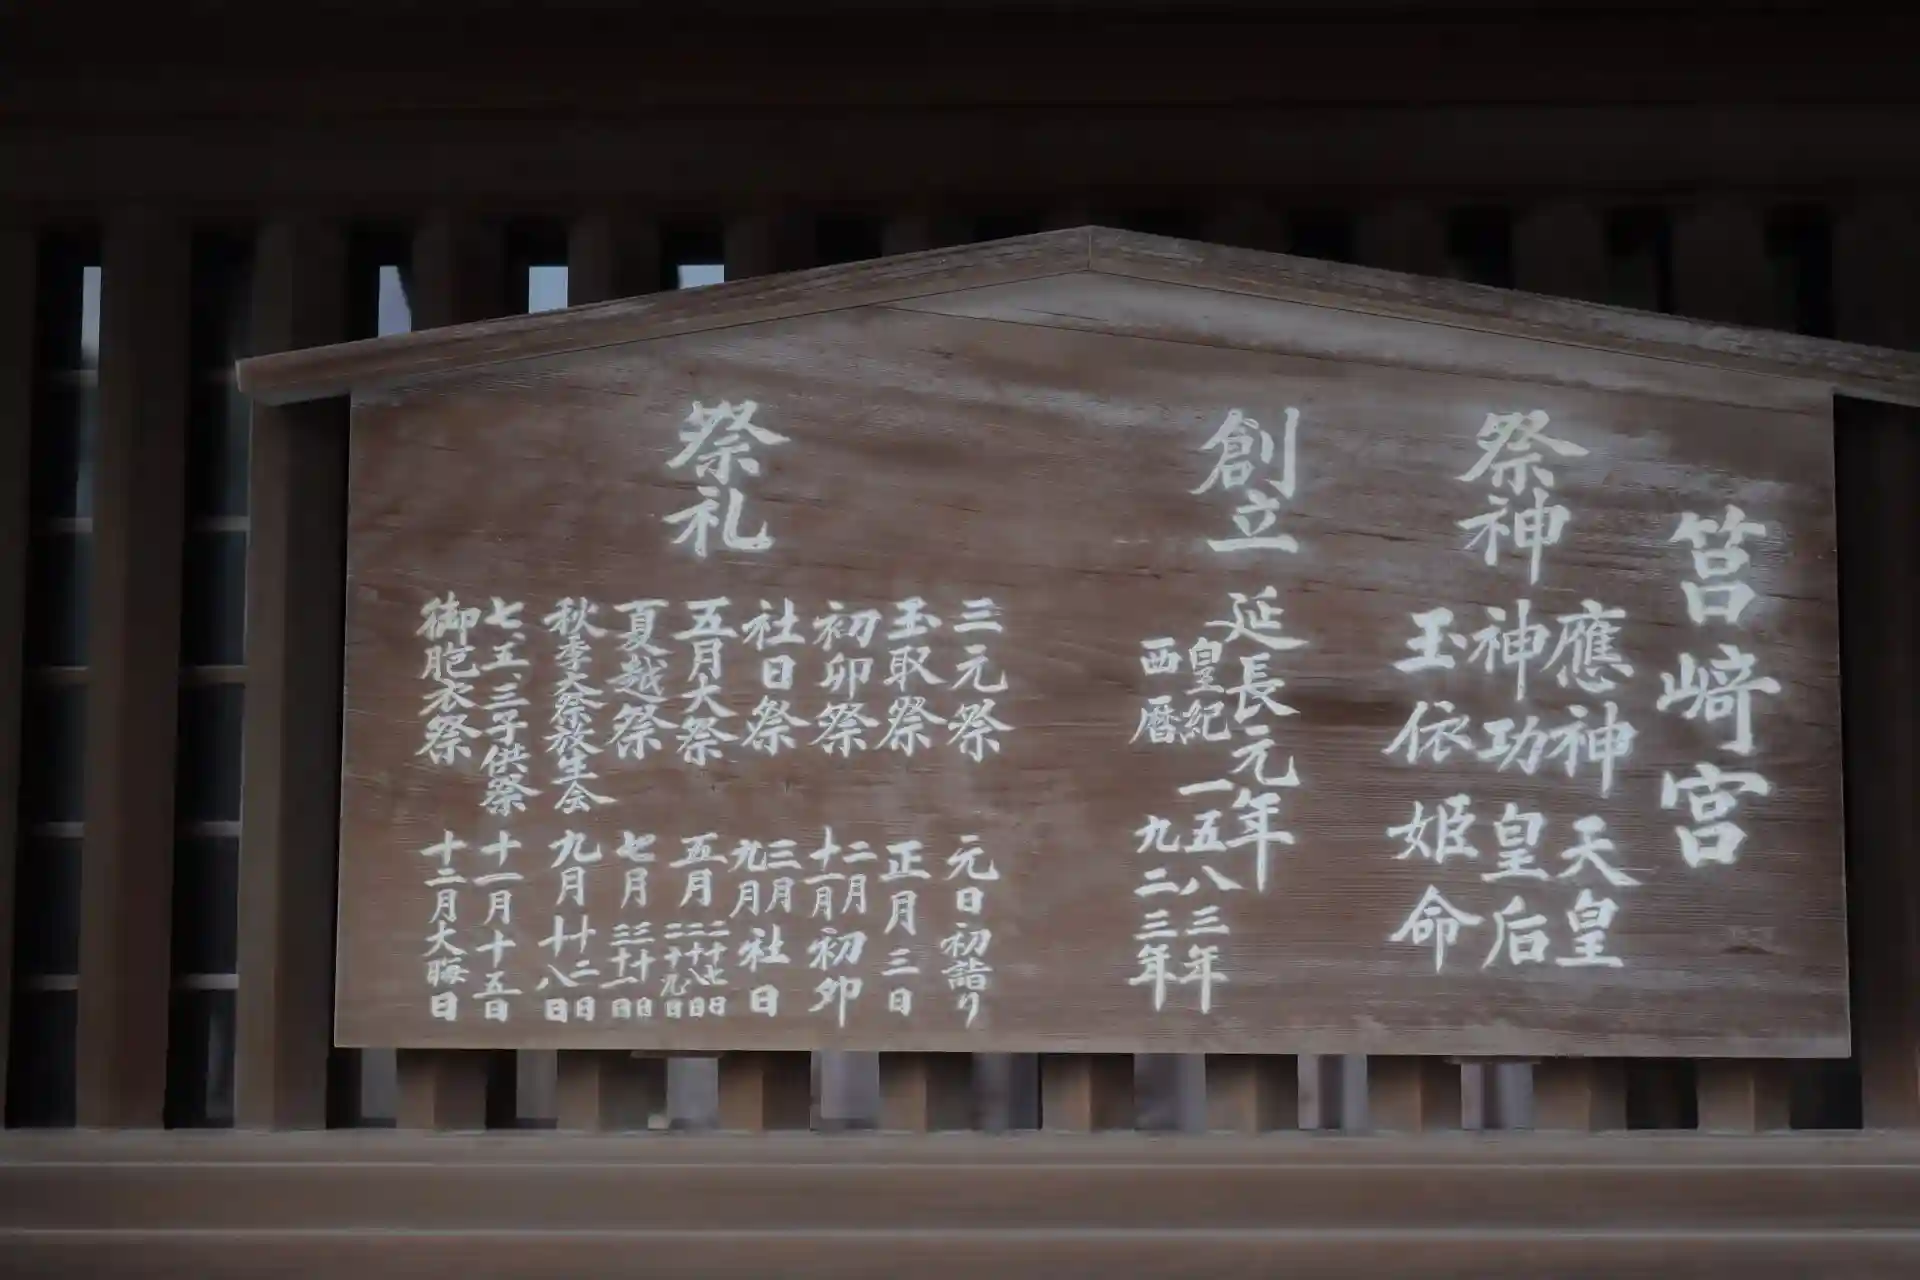 筥﨑宮
祭神
應神天皇
神功皇后
玉依姫命
創立
延長元年
皇紀 一五八三年
西暦 九二三年
祭礼
三元祭 元日初詣り
玉取祭 正月三日
初卯祭 二月十一月初卯
社日祭 三月九月社日
五月大祭 五月
夏越祭 七月三十日三十一日
秋季大祭放生会 九月十二日十八日
七、五、三子供祭 十一月十五日
御胞衣祭 十二月大晦日